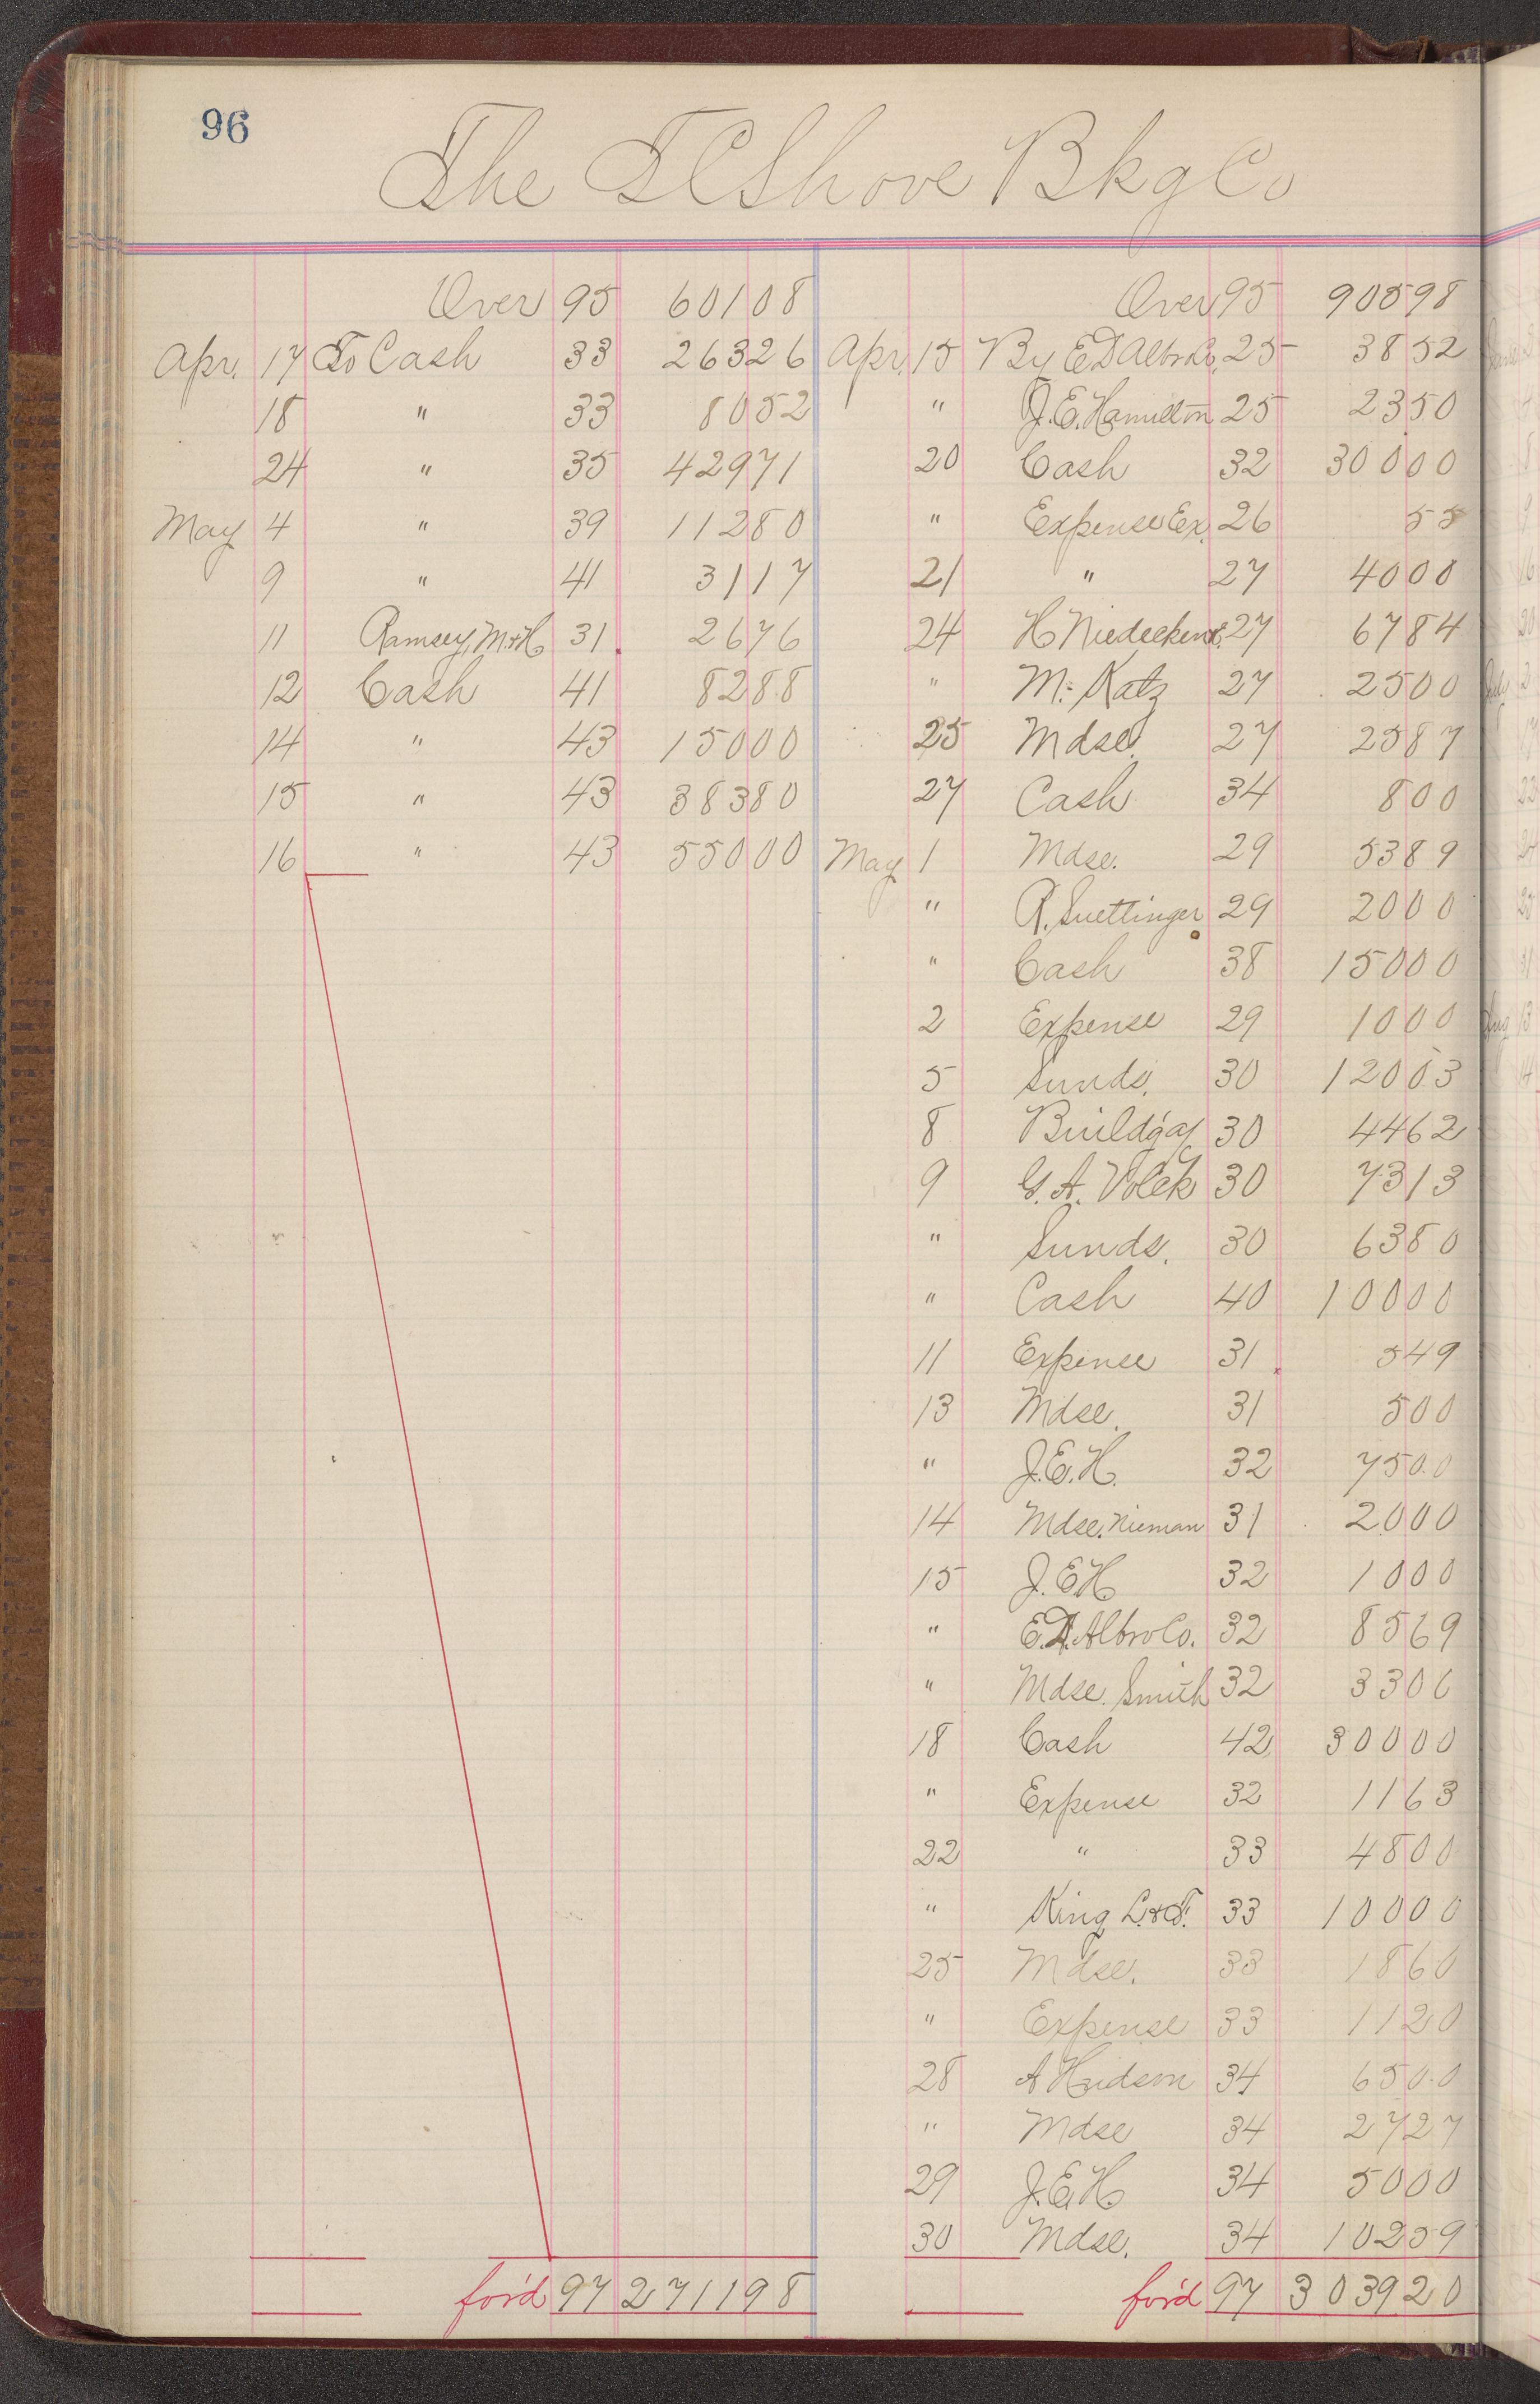 96
The T C Shove Bkg Co
Over 95 601 08
Apr. 17 To Cash 33 263 26
18 " 33 80 52
24 " 35 429 71
May 4 " 39 112 80
9 " 41 31 17
11 Ramsey, M.&H 31 26 76
12 Cash 41 82 88
14 " 43 150 00
15 " 43 383 80
16 " 43 550 00
for'd 97 2711 98
Over 95 905 98
Apr. 15 By E D Albro Co. 25 38 52
" J. E. Hamilton 25 23 50
20 Cash 32 300 00
" Expense Ex. 26 55
21 " 27 40 00
24 H Niedecken 27 67 84
" M. Katz 27 25 00
25 Mdse. 27 25 87
27 Cash 34 8 00
May 1 Mdse. 29 53 89
" R. Suettinger 29 20 00
" Cash 38 150 00
2 Expense 29 10 00
5 Sunds. 30 120 03
8 Buildg a/ 30 44 62
9 G. A. Volck 30 73 13
" Sunds. 30 63 80
" Cash 40 100 00
11 Expense 31 5 49
13 Mdse. 31 5 00
" J. E. H. 32 75 00
14 Mdse. Nieman 31 20 00
15 J. E H 32 10 00
" E. D. Albro Co. 32 85 69
" Mdse. Smith 32 33 06
18 Cash 42 300 00
" Expense 32 11 63
22 " 33 48 00
" King L. & T. 33 100 00
25 Mdse. 33 18 60
" Expense 33 11 20
28 A Hudson 34 65 00
" Mdse 34 27 27
29 J. E. H 34 50 00
30 Mdse. 34 102 59
for'd 97 3039 20